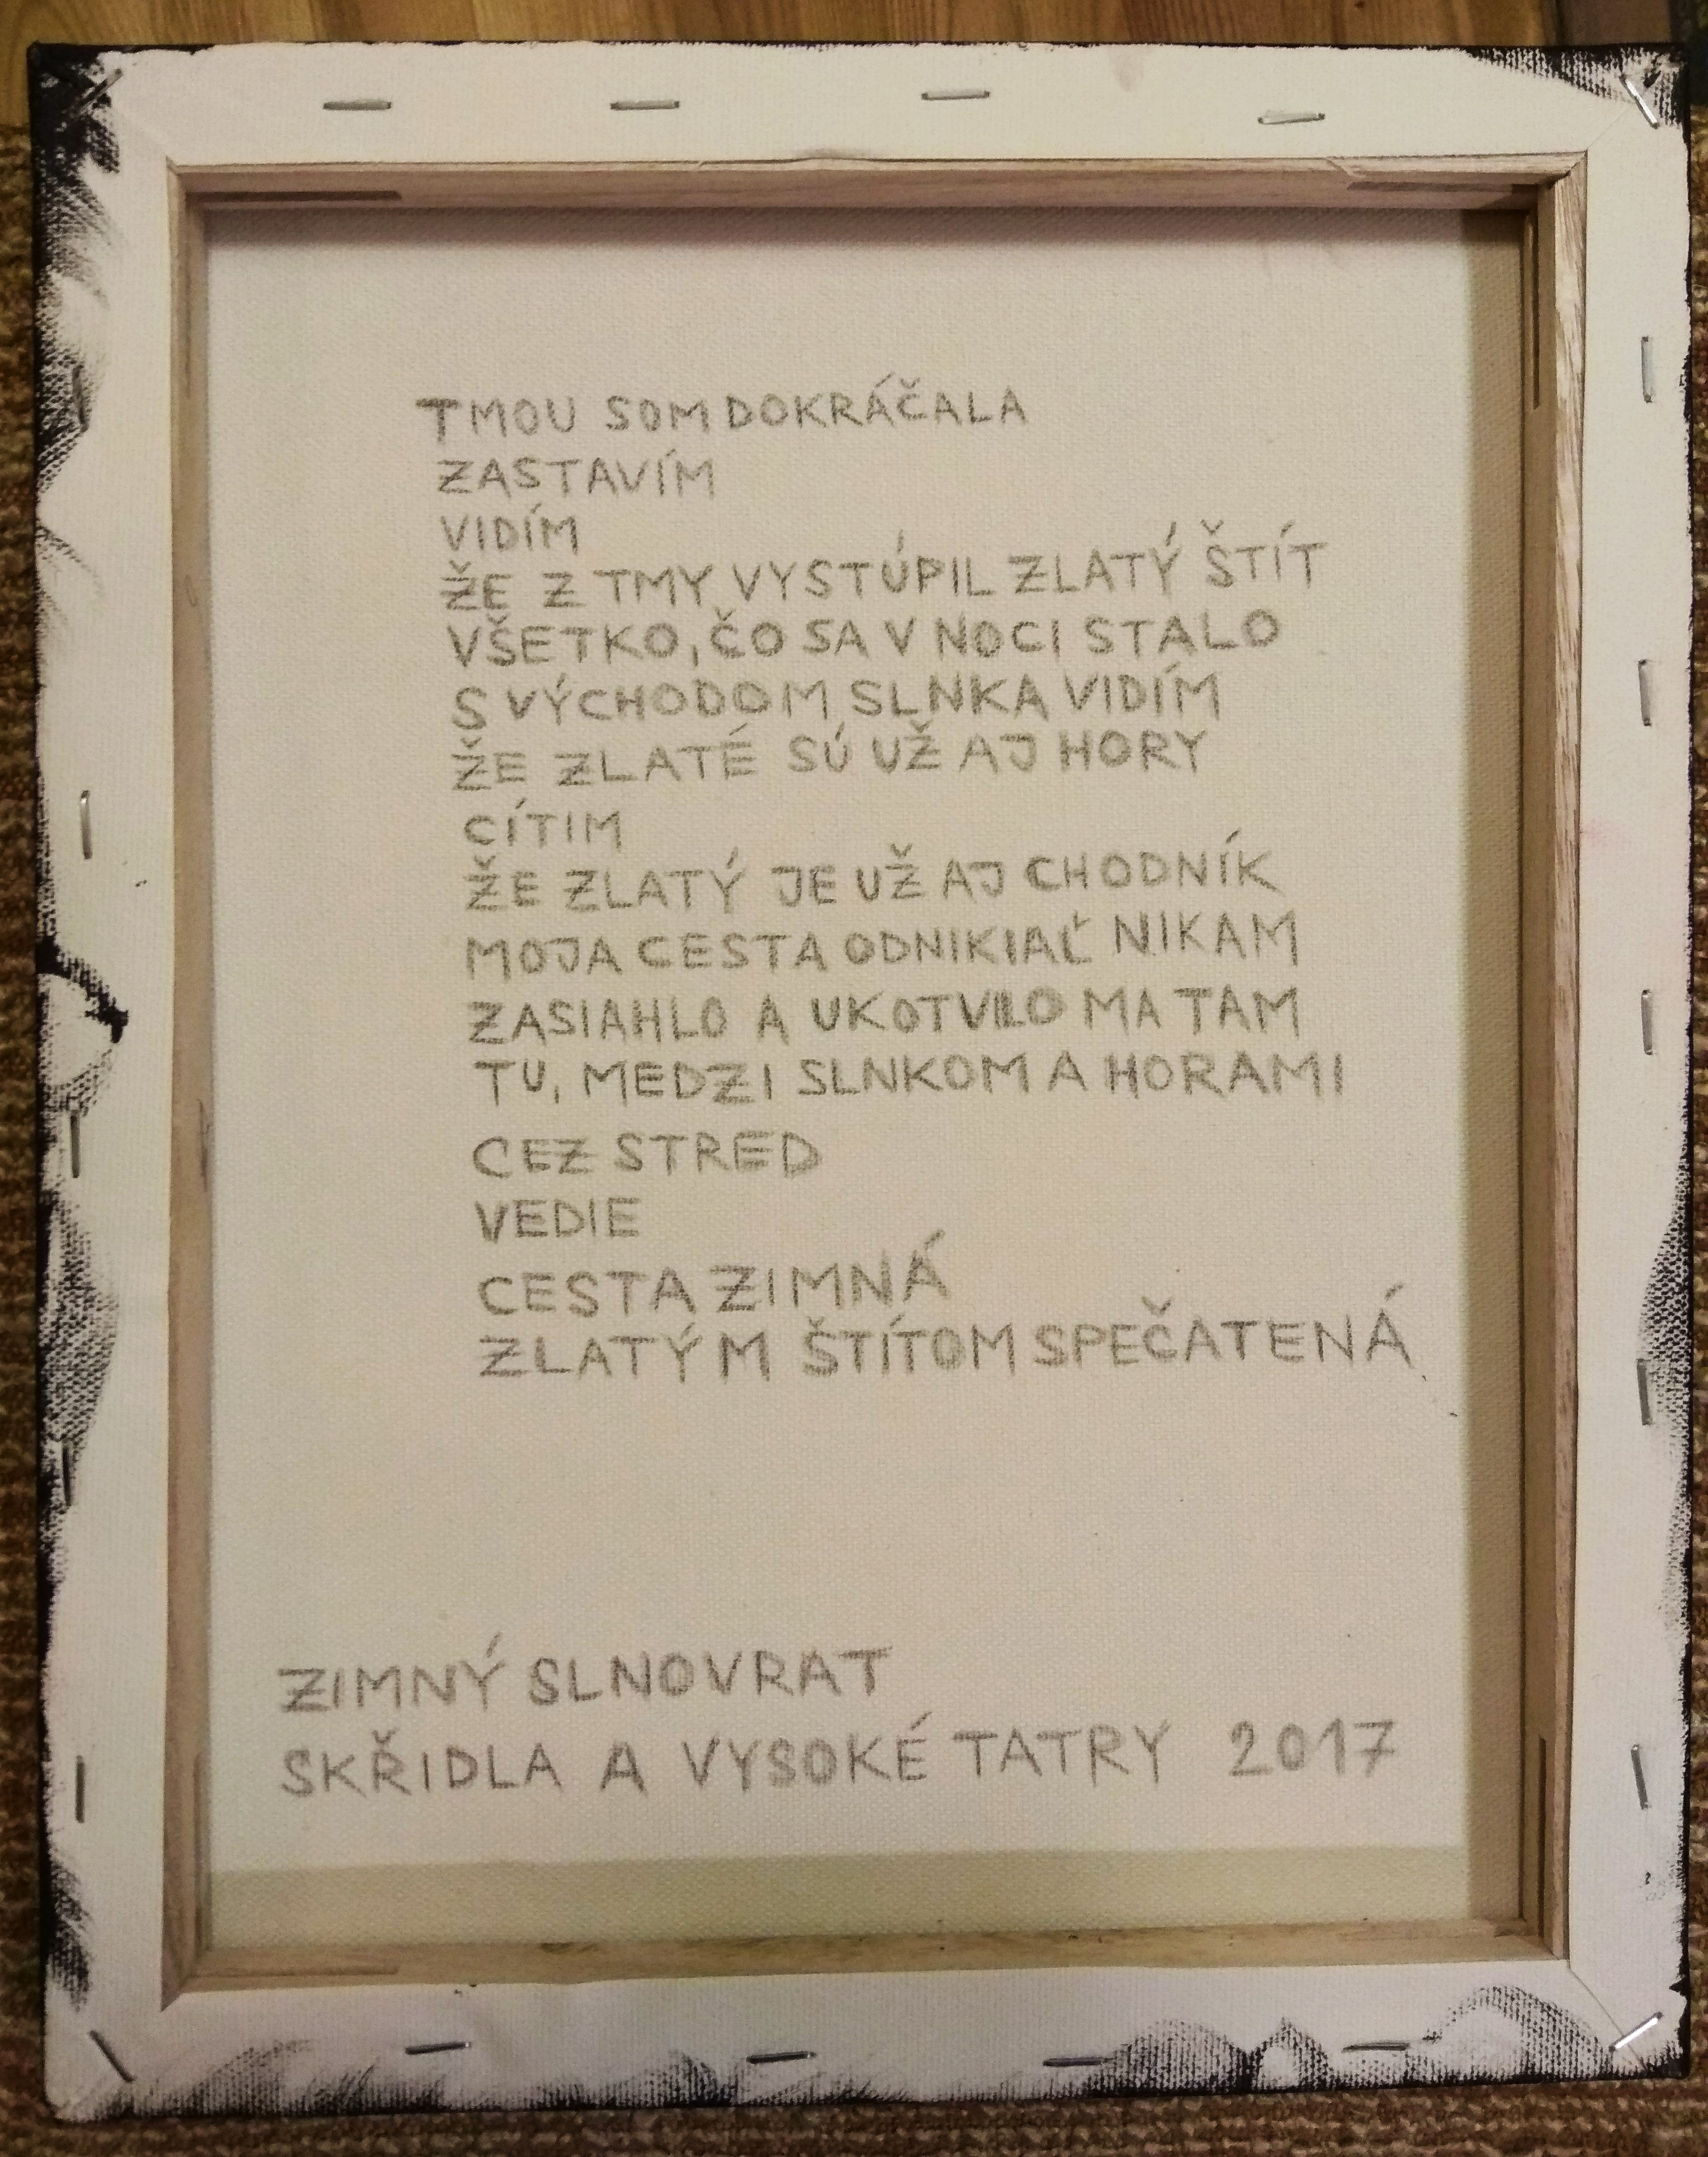 TMOU SOM DOKRÁČALA
ZASTAVÍM
VIDÍM
ŽE Z TMY VYSTÚPIL ZLATÝ ŠTÍT
VŠETKO, ČO SA V NOCI STALO
S VÝCHODOM SLNKA VIDÍM
ŽE ZLATÉ SÚ UŽ AJ HORY
CÍTIM
ŽE ZLATÝ JE UŽ AJ CHODNÍK
MOJA CESTA ODNIKIAĽ NIKAM
ZASIAHLO A UKOTVILO MA TAM
TU, MEDZI SLNKOM A HORAMI
CEZ STRED
VEDIE
CESTA ZIMNÁ
ZLATÝM ŠTÍTOM SPEČATENÁ
ZIMNÝ SLNOVRAT
SKŘIDLA A VYSOKÉ TATRY 2017